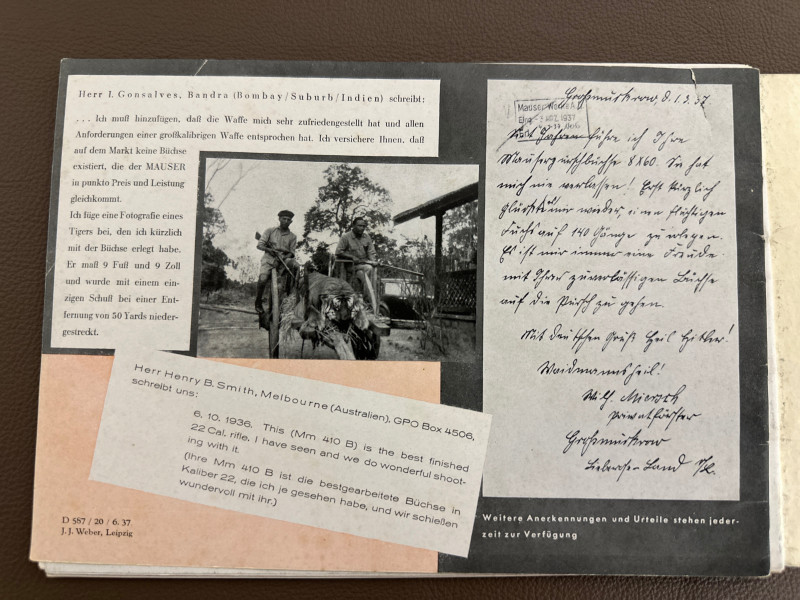 Herr I. Gonsalves, Bandra (Bombay/Suburb/Indien) schreibt:
. . . Ich muß hinzufügen, daß die Waffe mich sehr zufriedengestellt hat und allen
Anforderungen einer großkalibrigen Waffe entsprochen hat. Ich versichere Ihnen, daß
auf dem Markt keine Büchse
existiert, die der MAUSER
in punkto Preis und Leistung
gleichkommt.
Ich füge eine Fotografie eines
Tigers bei, den ich kürzlich
mit der Büchse erlegt habe.
Er maß 9 Fuß und 9 Zoll
und wurde mit einem ein-
zigen Schuß bei einer Ent-
fernung von 50 Yards nieder-
gestreckt.
Herr Henry B. Smith, Melbourne (Australien), GPO Box 4506,
schreibt uns:
6. 10. 1936. This (Mm 410 B) is the best finished
22 Cal. rifle, I have seen and we do wonderful shoot-
ing with it.
(Ihre Mm 410 B ist die bestgearbeitete Büchse in
Kaliber 22, die ich je gesehen habe, und wir schießen
wundervoll mit ihr.)
D 587 / 20 / 6. 37
J. J. Weber, Leipzig
Großmuckrow, d. 1.3.37
Mauser-Werke A.G.
1937
Jahren führe ich Ihre
Mauserpürschbüchse 8X60. Sie hat
mich nie verlassen! Erst kürzlich
glückte mir wieder, einen flüchtigen
Fuchs auf 140 Gänge zu erlegen.
Es ist mir immer eine Freude
mit Ihrer zuverlässigen Büchse
auf die Pürsch zu gehen.
Mit deutschem Gruß Heil Hitler!
Waidmannsheil!
Wilh.
Privatförster
Großmuckrow
Lieberose Land
Weitere Anerkennungen und Urteile stehen jeder-
zeit zur Verfügung